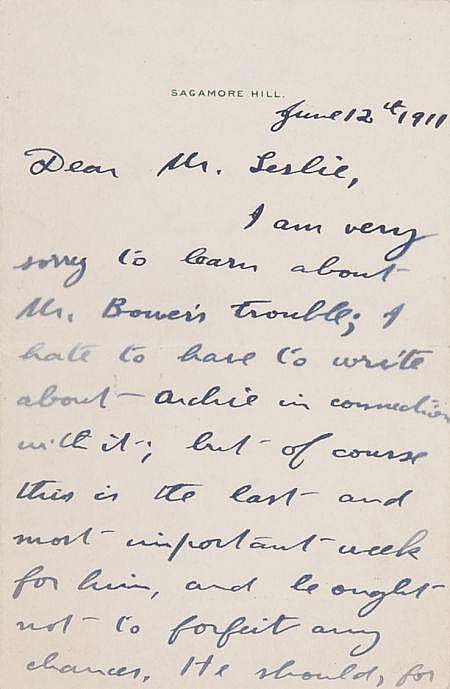 SAGAMORE HILL.
June 12th 1911
Dear Mr. Leslie,
I am very
sorry to learn about
Mr. Bower's trouble; I
hate to have to write
about Archie in connection
with it; but of course
this is the last and
most important week
for him, and he ought
not to forfeit any
chances. He should, for